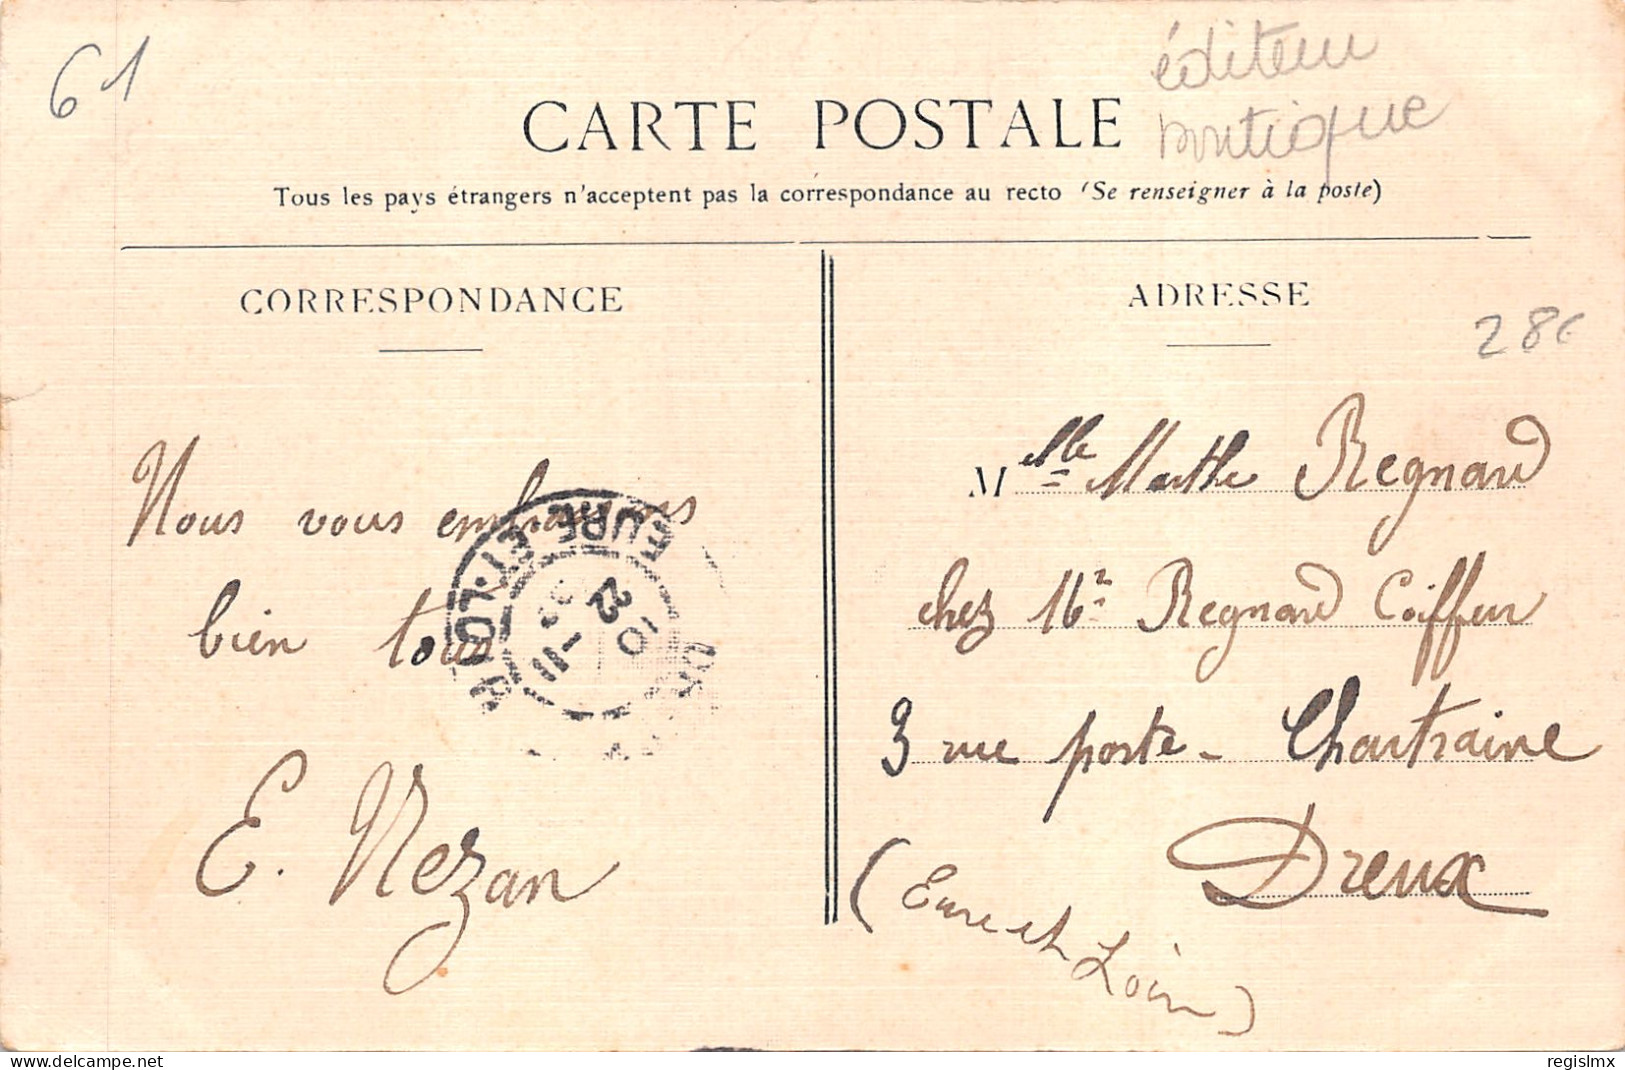 61
éditeur
CARTE POSTALE
Tous les pays étrangers n'acceptent pas la correspondance au recto (Se renseigner à la poste)
CORRESPONDANCE
Nous vous embrassons
bien tous
E. Nezan
EURE-ET-LOIR
22
10
-11
ADRESSE
28€
Mlle Marthe Regnard
chez Mr Regnard Coiffeur
3 rue porte - Chartraine
Dreux
(Eure et Loir)
delcampe.net
regislmx